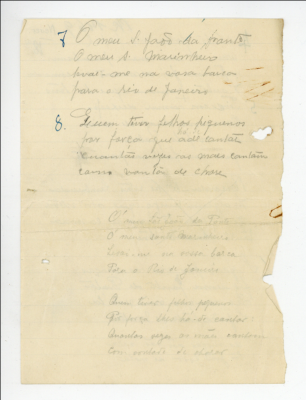 7. O meu S. João da fronte
O meu S. Marinheiro
levai-me na vossa barca
para o Rio de Janeiro
8. Quem tiver filhos pequenos
por força que ade cantá
Quantas vezes as mães cantam
com vontade de chorá
O meu São João da
O meu
Levai-me na vossa barca
Para o Rio de Janeiro
Quem tiver filhos pequenos
Por força lhes há-de cantar
Quantas vezes as mães cantam
Com vontade de chorar